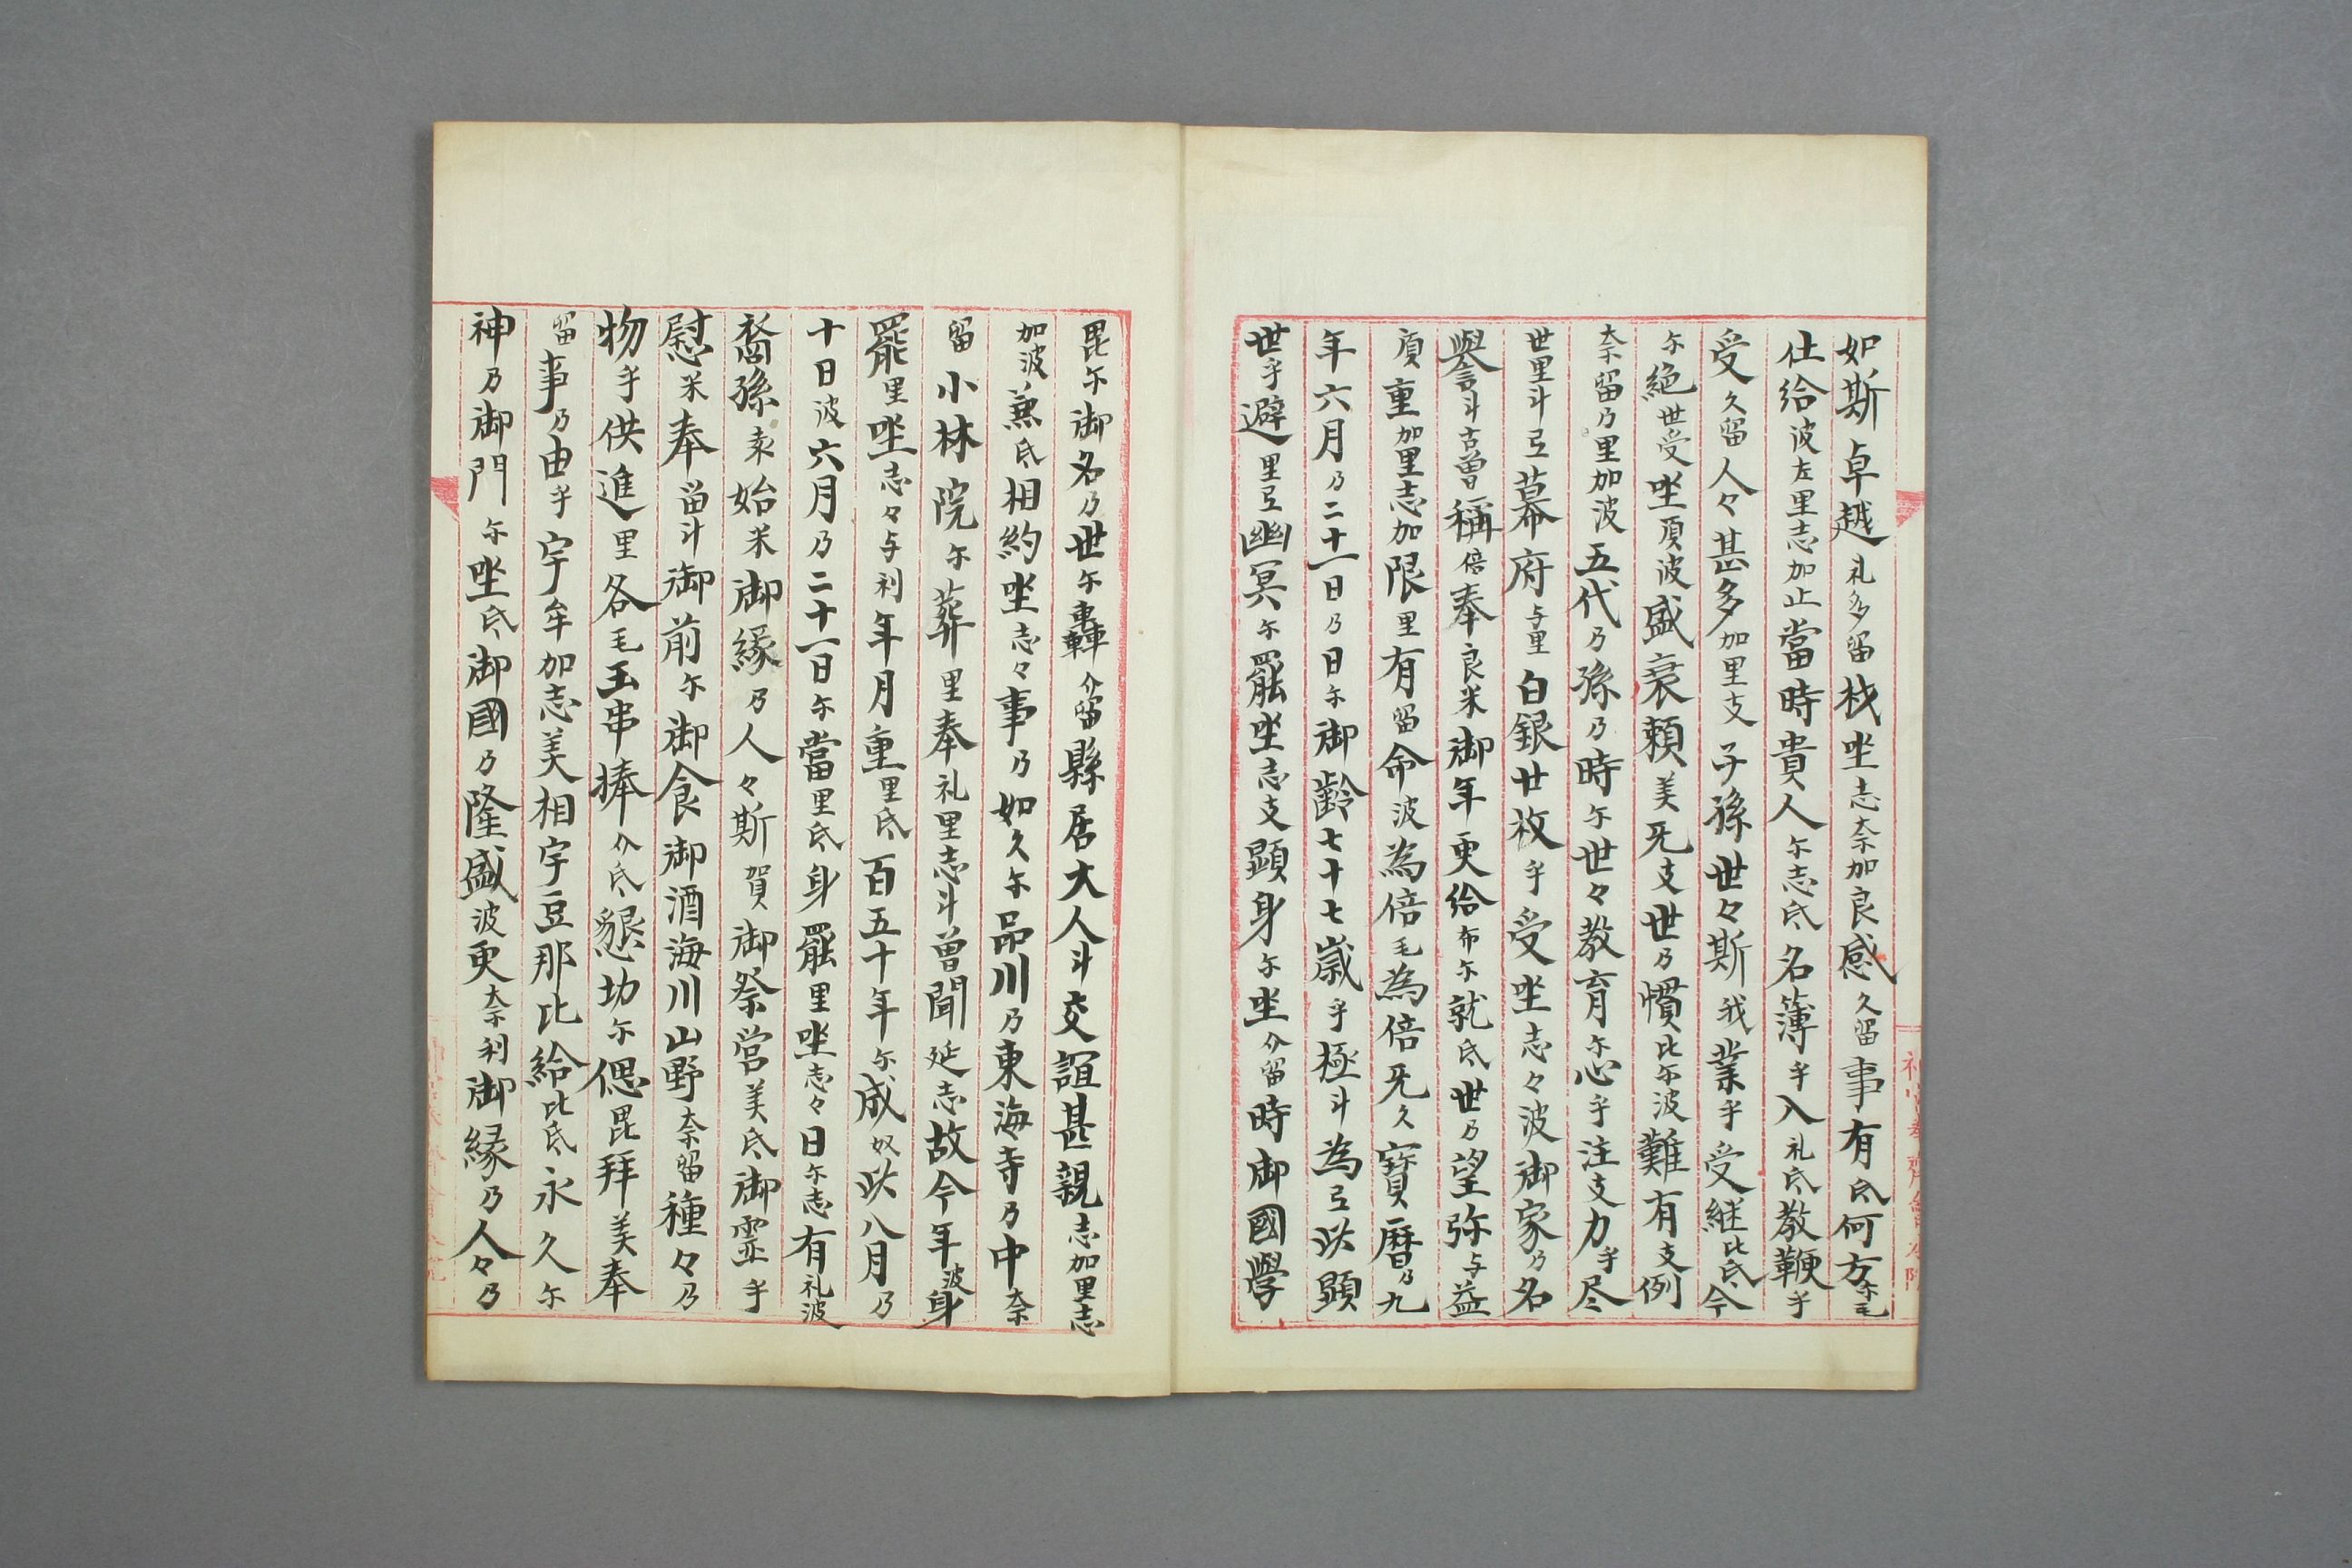 如斯卓越礼多留材坐志奈加良感久留事有氐何方尓毛
仕給波左里志加止當時貴人尓志氐名簿乎入礼氐教鞭乎
受久留人々甚多加里支子孫世々斯我業乎受継比氐今
尓絶世受坐頂波盛衰頼美旡支世乃慣比尓波難有支例
奈留乃里加波五代乃孫乃時尓世々教育尓心乎注支力乎尽
世里斗弖幕府与里白銀廿枚乎受坐志々波御家乃名
譽斗古曽稱倍奉良米御年更給布尓就氐世乃望弥与益
頂重加里志加限里有留命波為倍毛為倍旡久寶暦乃九
年六月乃二十一日乃日尓御齢七十七歳乎極斗為弖以顕
世乎避里弖幽冥尓罷坐志支顕身尓坐介留時御國學
毘尓御名乃世尓轟介留縣居大人斗交誼甚親志加里志
加波兼氐相約坐志々事乃如久尓品川乃東海寺乃中奈
留小林院尓葬里奉礼里志斗曽聞延志故今年波身
罷里坐志々与利年月重里氐百五十年尓成奴以八月乃
十日波六月乃二十一日尓當里氐身罷里坐志々日尓志有礼波
裔孫乎始米御縁乃人々斯賀御祭営美氐御霊乎
慰米奉留斗御前尓御食御酒海川山野奈留種々乃
物乎供進里各毛玉串捧介氐懇功尓偲毘拜美奉
留事乃由乎宇牟加志美相宇豆那比給比氐永久尓
神乃御門尓坐氐御國乃隆盛波更奈利御縁乃人々乃